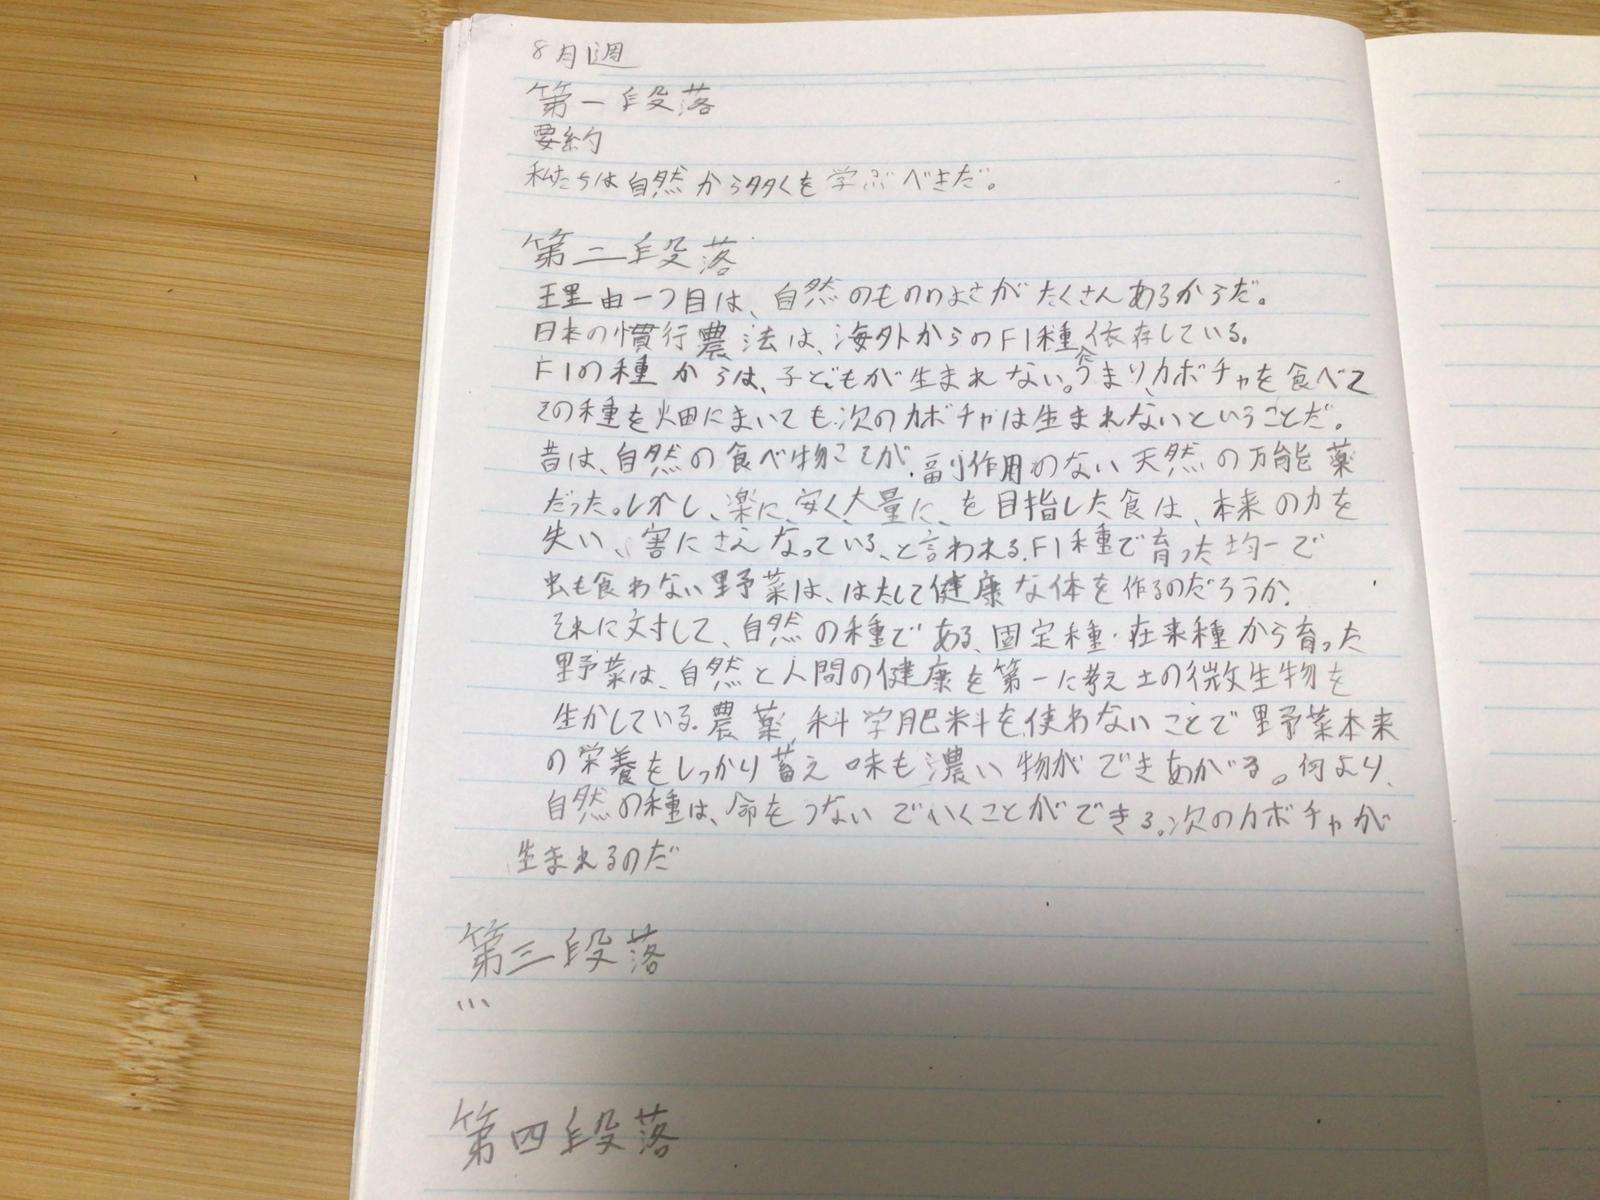 8月1週
第一段落
要約
私たちは自然から多くを学ぶべきだ。
第二段落
理由一つ目は、自然のもののよさがたくさんあるからだ。
日本の慣行農法は、海外からのF1種に依存している。
F1の種からは、子どもが生まれない。つまり、カボチャを食べて
その種を畑にまいても次のカボチャは生まれないということだ。
昔は、自然の食べ物こそが、副作用のない天然の万能薬
だった。しかし、楽に、安く、大量に、を目指した食は、本来の力を
失い、害にさえなっている、と言われる。F1種で育った均一で
虫も食わない野菜は、はたして健康な体を作るのだろうか。
それに対して、自然の種である、固定種・在来種から育った
野菜は、自然と人間の健康を第一に考え土の微生物を
生かしている。農薬、科学肥料を使わないことで野菜本来
の栄養をしっかり蓄え味も濃い物ができあがる。何より、
自然の種は、命をつないでいくことができる。次のカボチャが
生まれるのだ
第三段落
...
第四段落